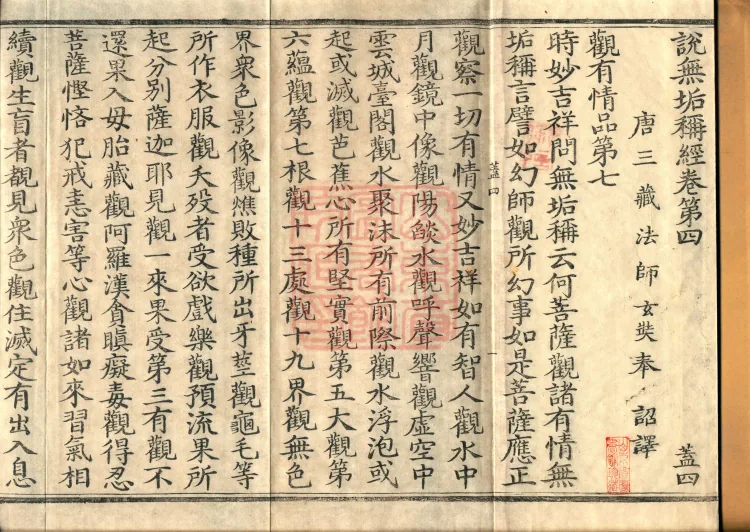 說無垢稱經卷第四 蓋四
唐三藏法師玄奘奉 詔譯
觀有情品第七
時妙吉祥問無垢稱云何菩薩觀諸有情無
垢稱言譬如幻師觀所幻事如是菩薩應正
蓋四
觀察一切有情又妙吉祥如有智人觀水中
月觀鏡中像觀陽燄水觀呼聲響觀虛空中
雲城臺閣觀水聚沫所有前際觀水浮泡或
起或滅觀芭蕉心所有堅實觀第五大觀第
六蘊觀第七根觀十三處觀十九界觀無色
界眾色影像觀燋敗種所出牙莖觀龜毛等
所作衣服觀夭歿者受欲戲樂觀預流果所
起分別薩迦耶見觀一來果受第三有觀不
還果入母胎藏觀阿羅漢貪瞋癡毒觀得忍
菩薩慳悋犯戒恚害等心觀諸如來習氣相
續觀生盲者覩見眾色觀住滅定有出入息